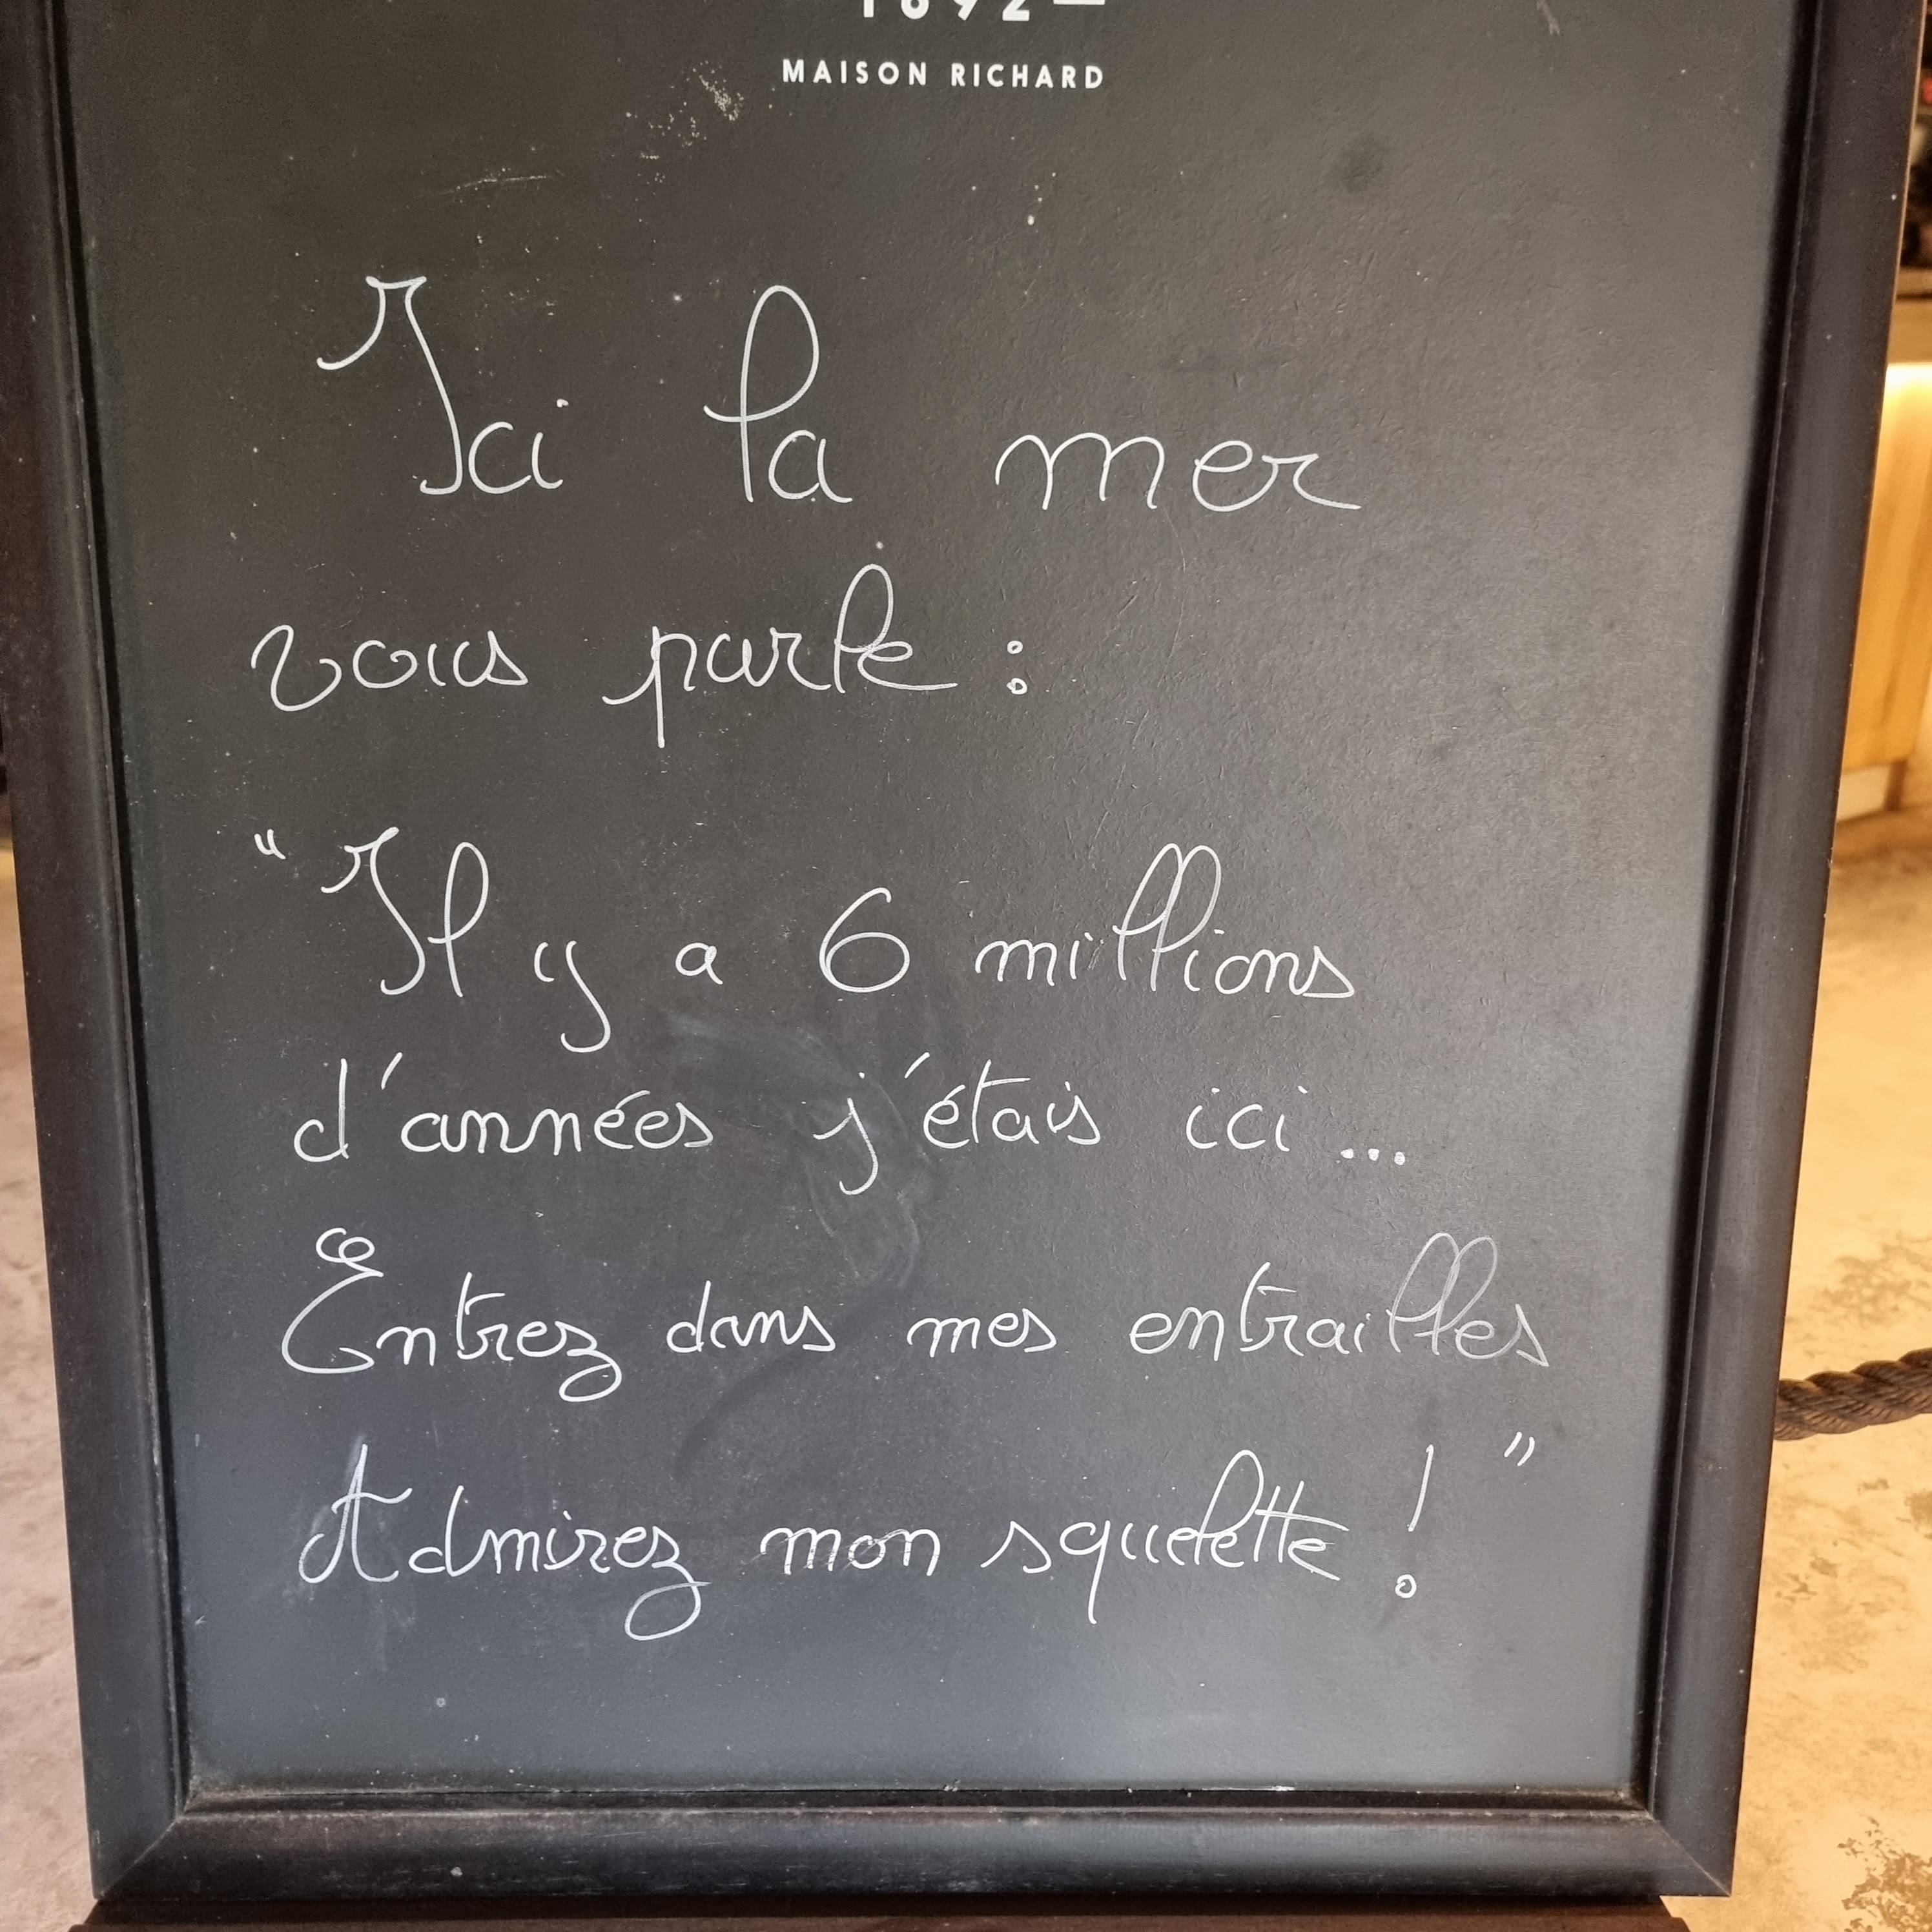 1892 —
MAISON RICHARD
Ici la mer
vous parle :
"Il y a 6 millions
d'années j'étais ici ...
Entrez dans mes entrailles
Admirez mon squelette ! "